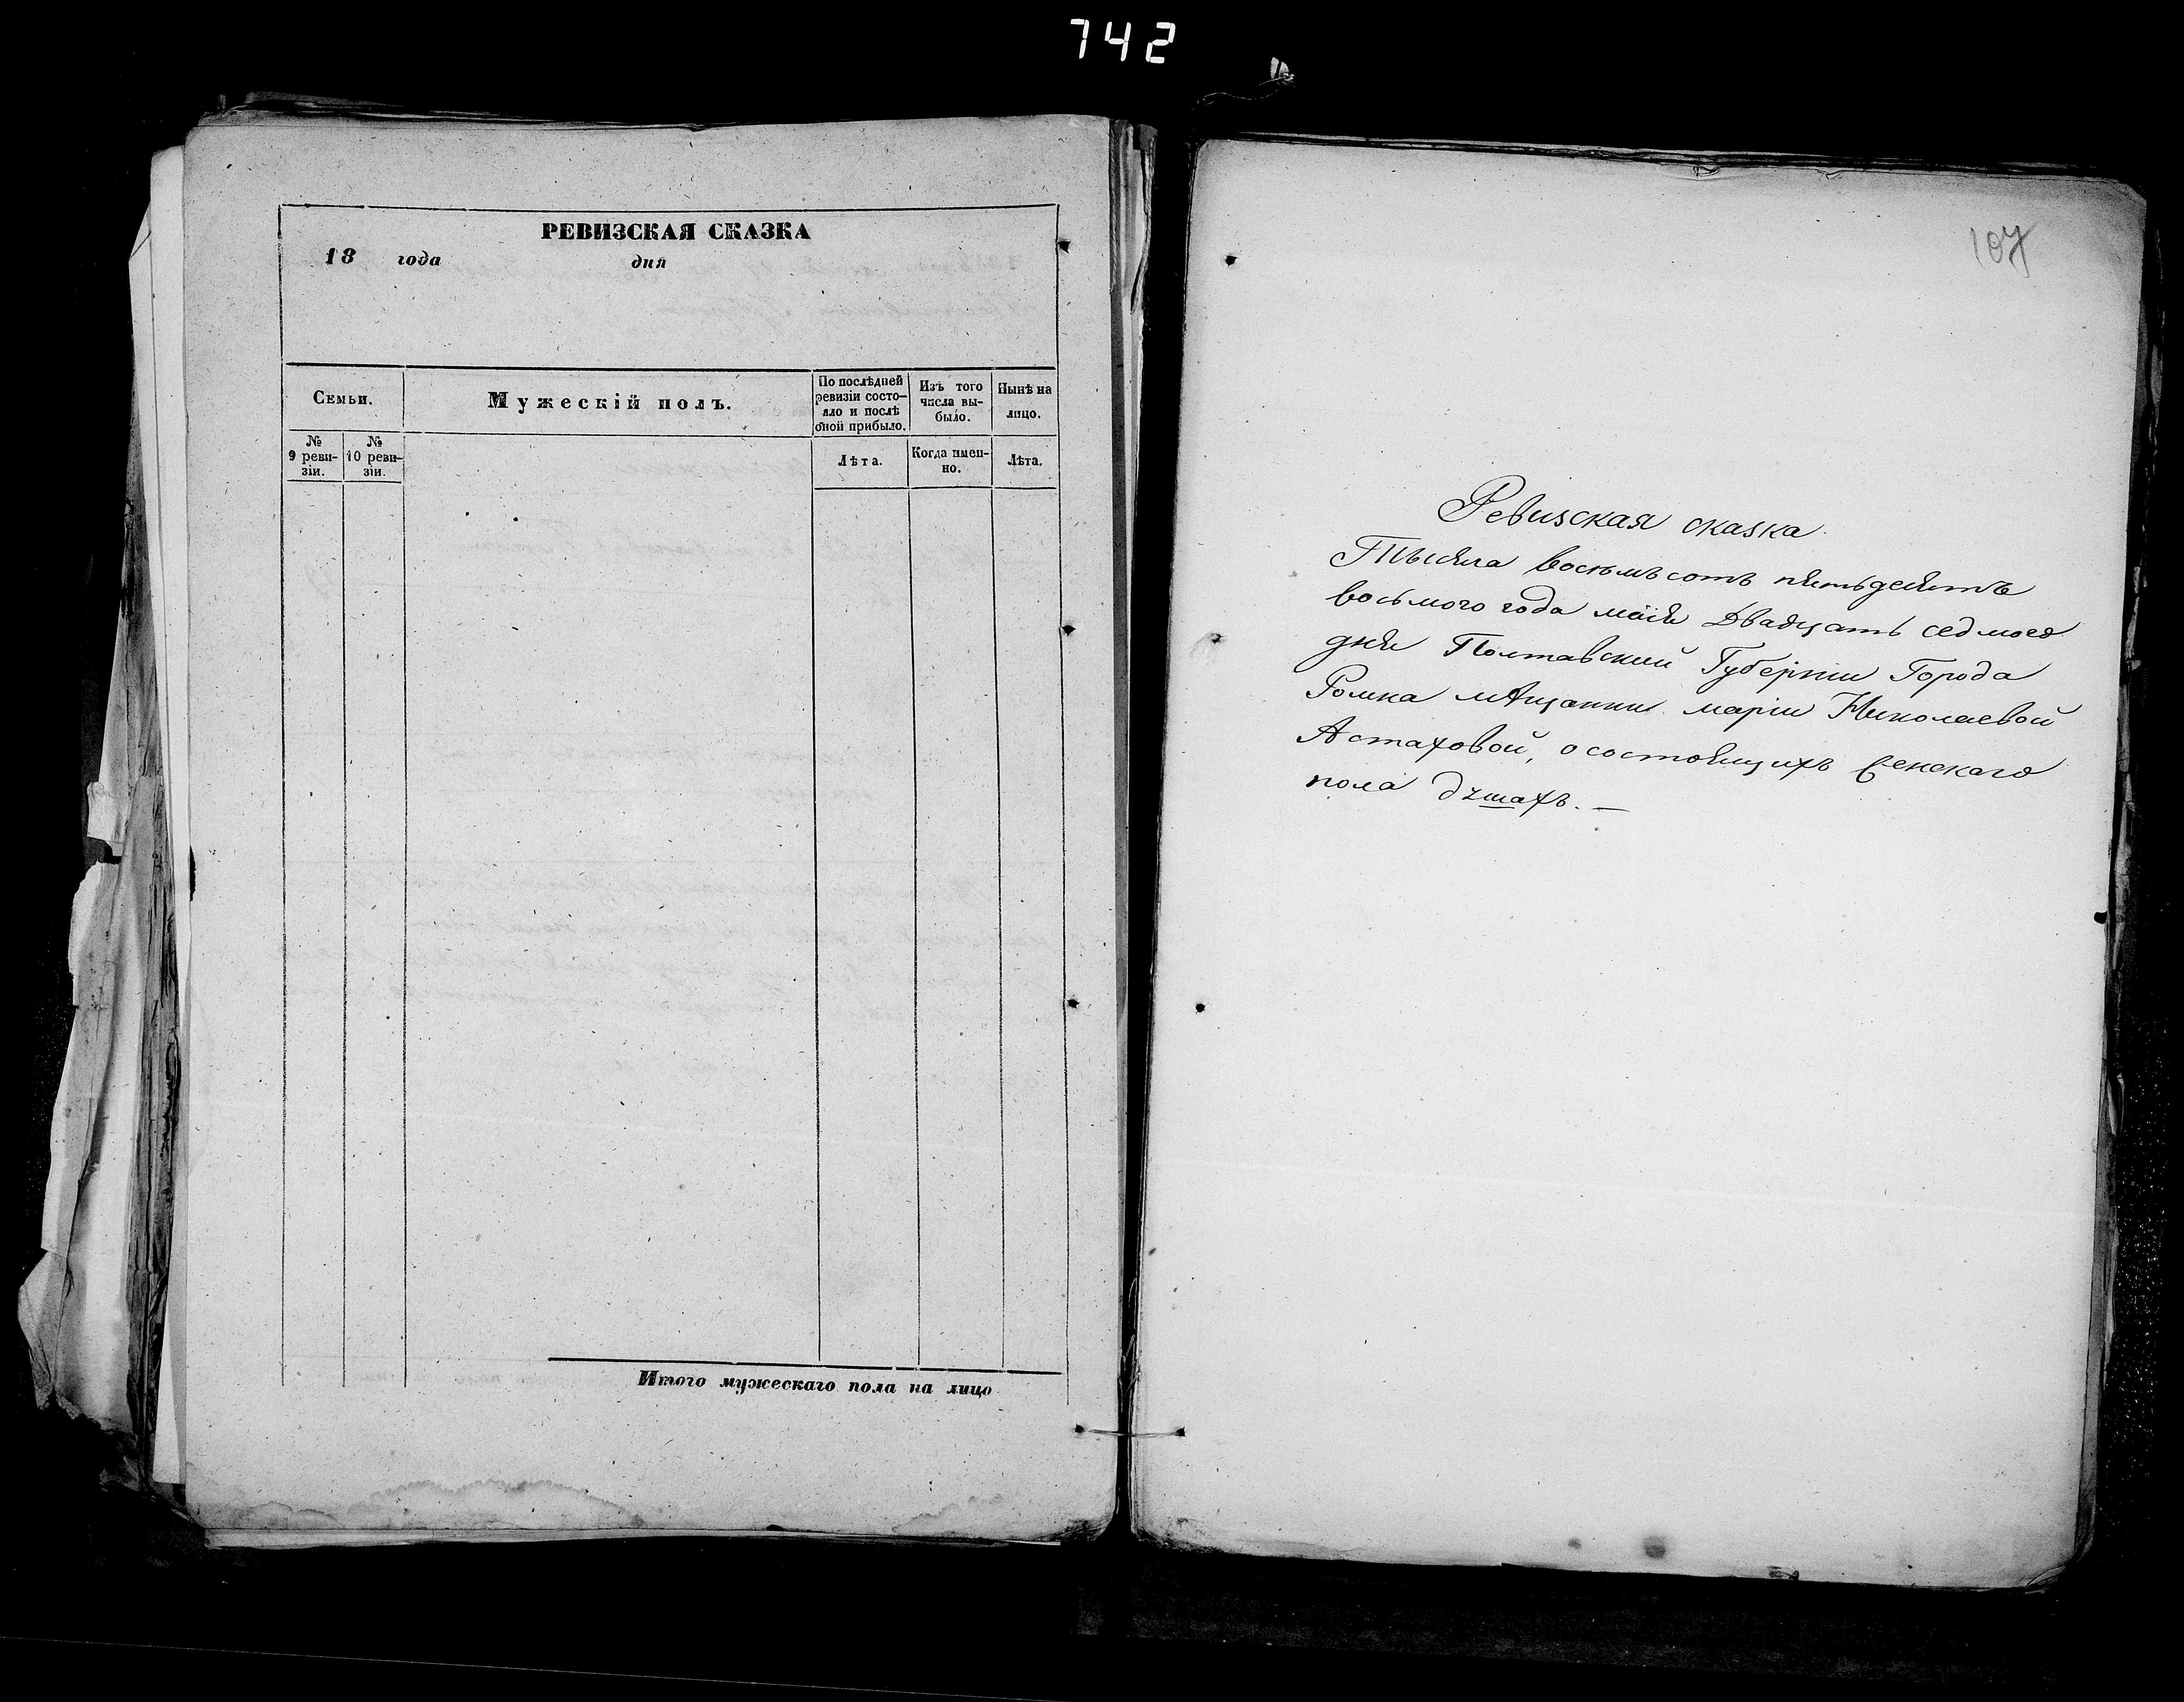 742
РЕВИЗСКАЯ СКАЗКА
18 года дня
Семьи.
Мужескій полъ.
По послѣдней ревизіи состо-
яло и послѣ оной прибыло.
Изъ того числа вы-
было.
Нынѣ на лицо.
№ 9 реви-
зіи.
№ 10 реви-
зіи.
Лѣта.
Когда имен-
но.
Лѣта.
Итого мужескаго пола на лицо
107
Ревизская сказка
Тысяча восемьсотъ пятьдесятъ
восьмого года маія Двадцать седмого
дня Полтавский Губерніи Города
Ромна мѣщанки маріи Николаевой
Астаховой, о состоящихъ женскаго
пола душахъ. —